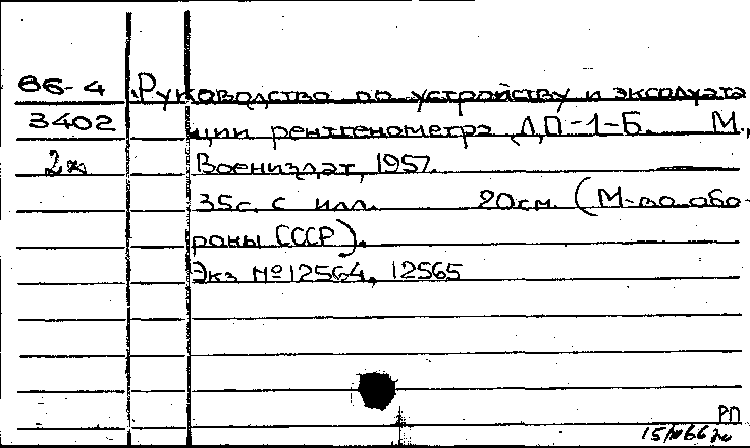 66-4 Руководство по устройству и эксплуата
3402 ции рентгенометра ДП-1-Б. М.,
2х Воениздат, 1957.
35с. с илл. 20см. (М-во обо-
роны СССР).
Экз №12564, 12565
РП